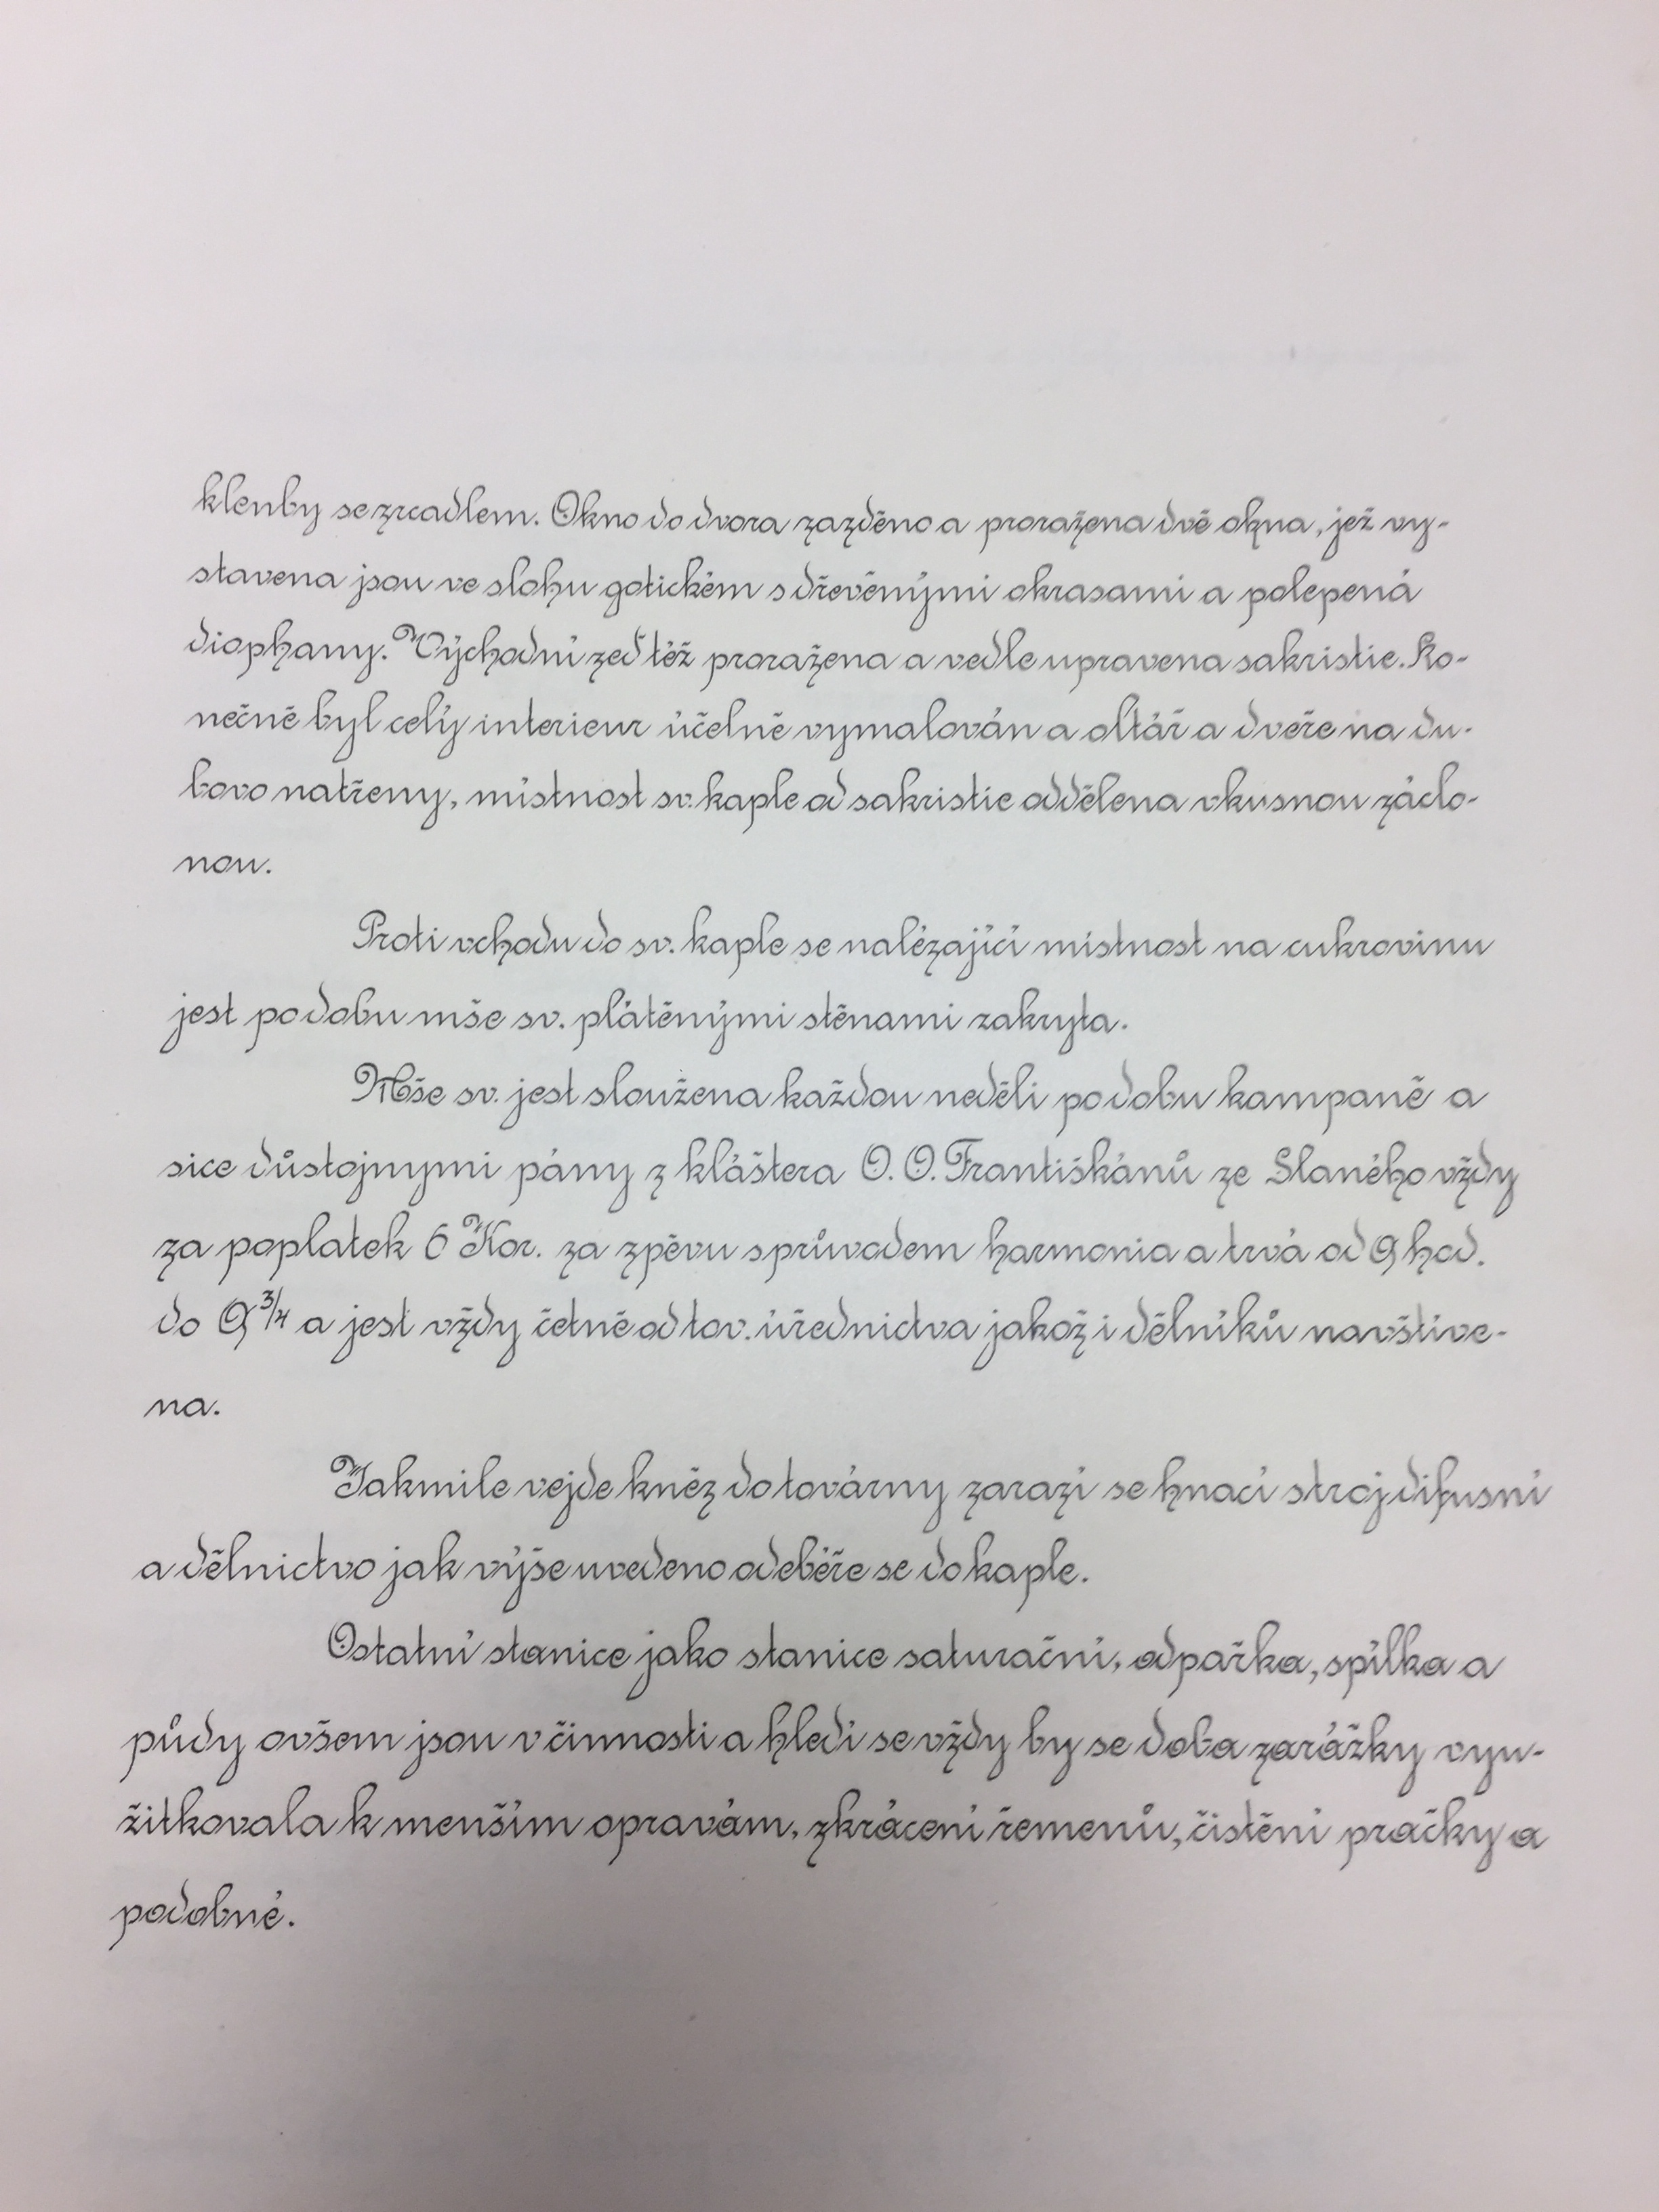 klenby se zrcadlem. Okno do dvora zazděno a proražena dvě okna, jež vy-
stavena jsou ve slohu gotickém s dřevěnými okrasami a polepená
diophany. Východní zeď též proražena a vedle upravena sakristie. Ko-
nečně byl celý interieur účelně vymalován a oltář a dveře na du-
bovo natřeny, místnost sv. kaple od sakristie oddělena vkusnou záclo-
nou.
Proti vchodu do sv. kaple se nalézající místnost na cukrovinu
jest po dobu mše sv. plátěnými stěnami zakryta.
Mše sv. jest sloužena každou neděli po dobu kampaně a
sice důstojnymi pány z kláštera O. O. Františkánů ze Slaného vždy
za poplatek 6 Kor. za zpěvu s průvodem harmonia a trvá od 9 hod.
do 9 3/4 a jest vždy četně od tov. úřednictva jakož i dělníků navštíve-
na.
Jakmile vejde kněz do továrny zarazí se hnací stroj difusní
a dělnictvo jak výše uvedeno odebéře se do kaple.
Ostatní stanice jako stanice saturační, odpařka, spílka a
půdy ovšem jsou v činnosti a hledí se vždy by se doba zarážky vyu-
žitkovala k menším opravám, zkrácení řemenů, čistění pračky a
podobné.